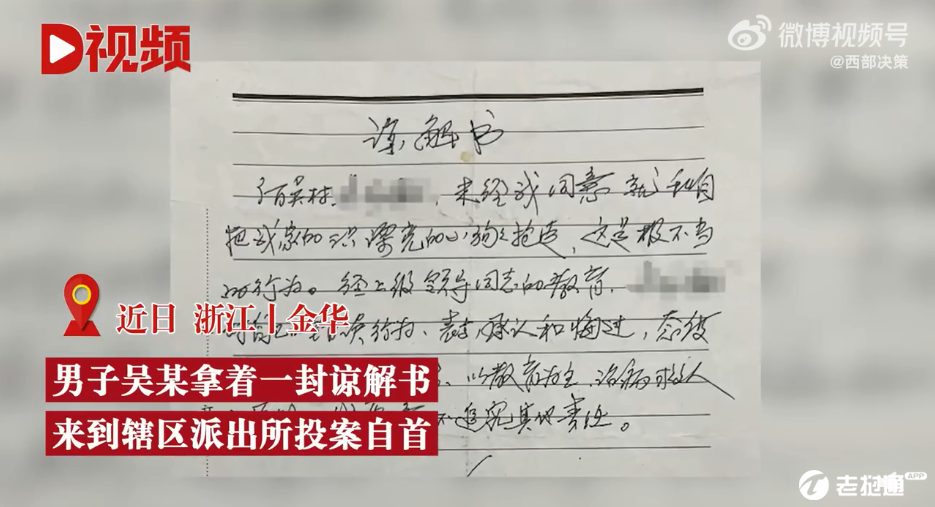 视频
微博视频号
@西部决策
谅解书
未经我同意就私自
把我家的只漂亮的小狗抢走，这是极不当
的行为。经上级领导同志的教育，
行为、表示承认和悔过，态度
近日 浙江 | 金华
男子吴某拿着一封谅解书
以教育为主、治病救人
来到辖区派出所投案自首
不追究其责任。
老挝通
APP